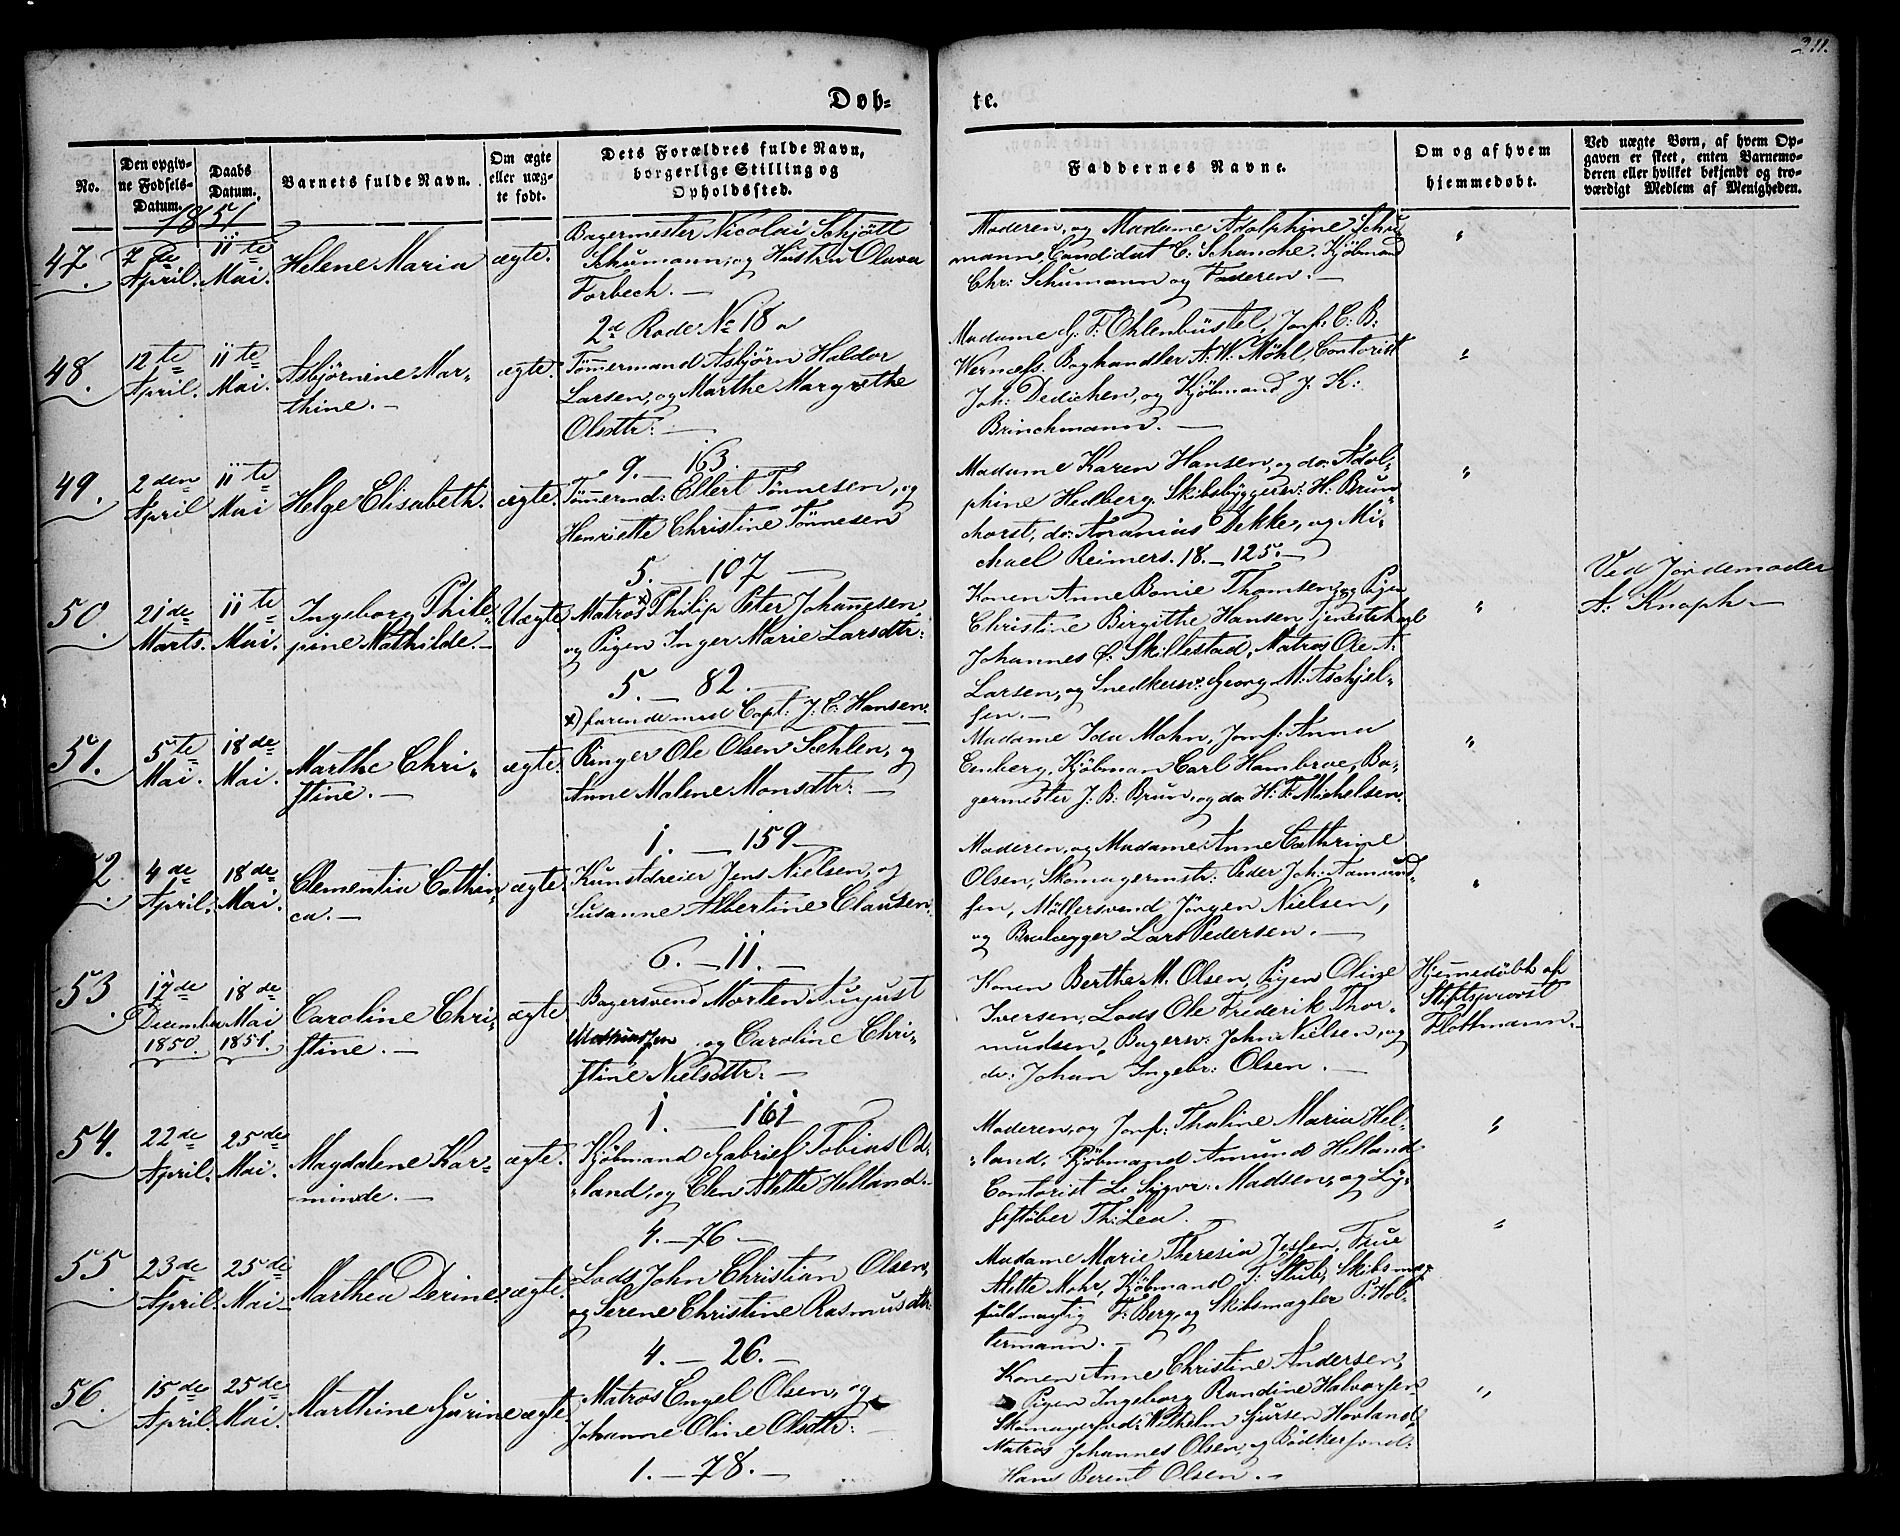 211.
Døb- te.
No.
Den opgiv-
ne Fødsels-
Datum.
Daabs
Datum.
Barnets fulde Navn.
Om ægte
eller uæg-
te født.
Dets Forældres fulde Navn,
borgerlige Stilling og
Opholdssted.
Faddernes Navne.
Om og af hvem
hjemmedøbt.
Ved uægte Børn, af hvem Op-
gaven er skeet, enten Barnemo-
deren eller hvilket bekjendt og tro-
værdigt Medlem af Menigheden.
1851.
47.
7de
April.
11te
Mai.
Helene Maria
ægte.
Bagermester Nicolai Schjøtt
Schumann, og Hustru Olava
Forbech. —
2d Rode No 18 a
Moderen, og Madame Adolphine Schu
mann, Candidat C: Schanche, Kjøbmand
Chr: Schumann og Faderen. —
"
48.
12te
April.
11te
Mai.
Asbjørnine Mar-
thine. —
ægte.
Tømmermand Asbjørn Haldor
Larsen, og Marthe Margrethe
Olsdtr: —
9. — 163.
Madame G. F: Ohlenbüstel, Jomf: C: B:
Wernæss. Boghandler A: W: Möhl, Contorist
Joh: Dedichen, og Kjöbmand J. K:
Brinchmann. —
"
49.
2den
April
11te
Mai
Helge Elisabeth.
ægte.
Tømmermd: Ellert Tönnesen, og
Henriette Christine Tönnesen
5. — 107 —
Madame Karen Hansen, og do: Adol-
phine Hedberg. Skibsbyggersv: H: Brun
chorst, do: Ananias Dekke, og Mi-
chael Reimers. 18. — 125. —
"
50.
21de
Marts.
11te
Mai.
Ingeborg Phile-
pine Mathilde. —
Uægte.
Matros x) Philip Peter Johannesen
og Pigen Inger Marie Larsdtr:
5. — 82. —
x) farende med Capt: J: C: Hansen.
Konen Anne Bonie Thomsen, og Pigen
Christine Birgithe Hansen Tjenestekarl
Johannes O: Skillestad, Matros Ole A:
Larsen, og Snedkersv: Georg M: Aschjel-
sen. —
"
Ved Jordemoder
A: Knaph —
51.
5te
Mai.
18de
Mai.
Marthe Chri-
stine. —
ægte.
Ringer Ole Olsen Sæhlen, og
Anne Malene Monsdtr: —
1. — 159 —
Madame Ida Mohn, Jomf: Anna
Enberg, Kjøbman Carl Hambroe, Ba-
germester J: B: Brun, og do: H: F: Michelsen.
"
52.
4de
April.
18de
Mai.
Clementia Cathin-
ca. —
ægte.
Kunstdreier Jens Nielsen, og
Susanne Albertine Clausen.
6. — 11. —
Moderen, og Madame Anne Cathrine
Olsen, Skomagermstr: Peder Joh: Aamund-
sen, Møllersvend Jörgen Nielsen,
og Brolægger Lars Pedersen. —
"
53.
17de
December
1850.
18de
Mai
1851.
Caroline Chri-
stine. —
ægte
Bagersvend Morten August
og Caroline Chri-
stine Nielsdtr: —
1. — 161
Konen Berthe M: Olsen, Pigen Oline
Iversen, Lods Ole Frederik Thor-
mudsen, Bagersv: John Nielsen, og
do: Johan Ingebr: Olsen. —
Hjemmedöbt af
Stiftsprovst
Flottmann. —
54.
22de
April.
25de
Mai.
Magdalene Kar-
minde. —
ægte.
Kjøbmand Gabriel Tobias Od-
land, og Elen Alette Helland. —
4. — 76 —
Moderen, og Jomf: Thaline Maria Hel-
land, Kjøbmand Amund Helland
Contorist L: Sygvr: Madsen, og Ly-
sestøber Th: Lea.
"
55.
23de
April.
25de
Mai —
Marthea Derine.
ægte.
Lods John Christian Olsen,
og Serene Christine Rasmusdtr:
4. — 26. —
Madame Marie Theresia Jessen, Frue
Alette Mohr, Kjøbmand J: Stub, Skibsmægl
fuldmægtig F: Berg, og Skibsmægler P: Hol-
termann. —
"
56.
15de
April.
25de
Mai.
Marthine Gurine
ægte.
Matros Engel Olsen, og
Johanne Oline Olsdtr: —
1. — 78. —
Konen Anne Christine Andersen,
Pigen Ingeborg Randine Halvorsen
Skomagersvd: Wilhelm Sjursen Hovland
Matros Johannes Olsen, og Bödkersvnd:
Hans Berent Olsen. —
"